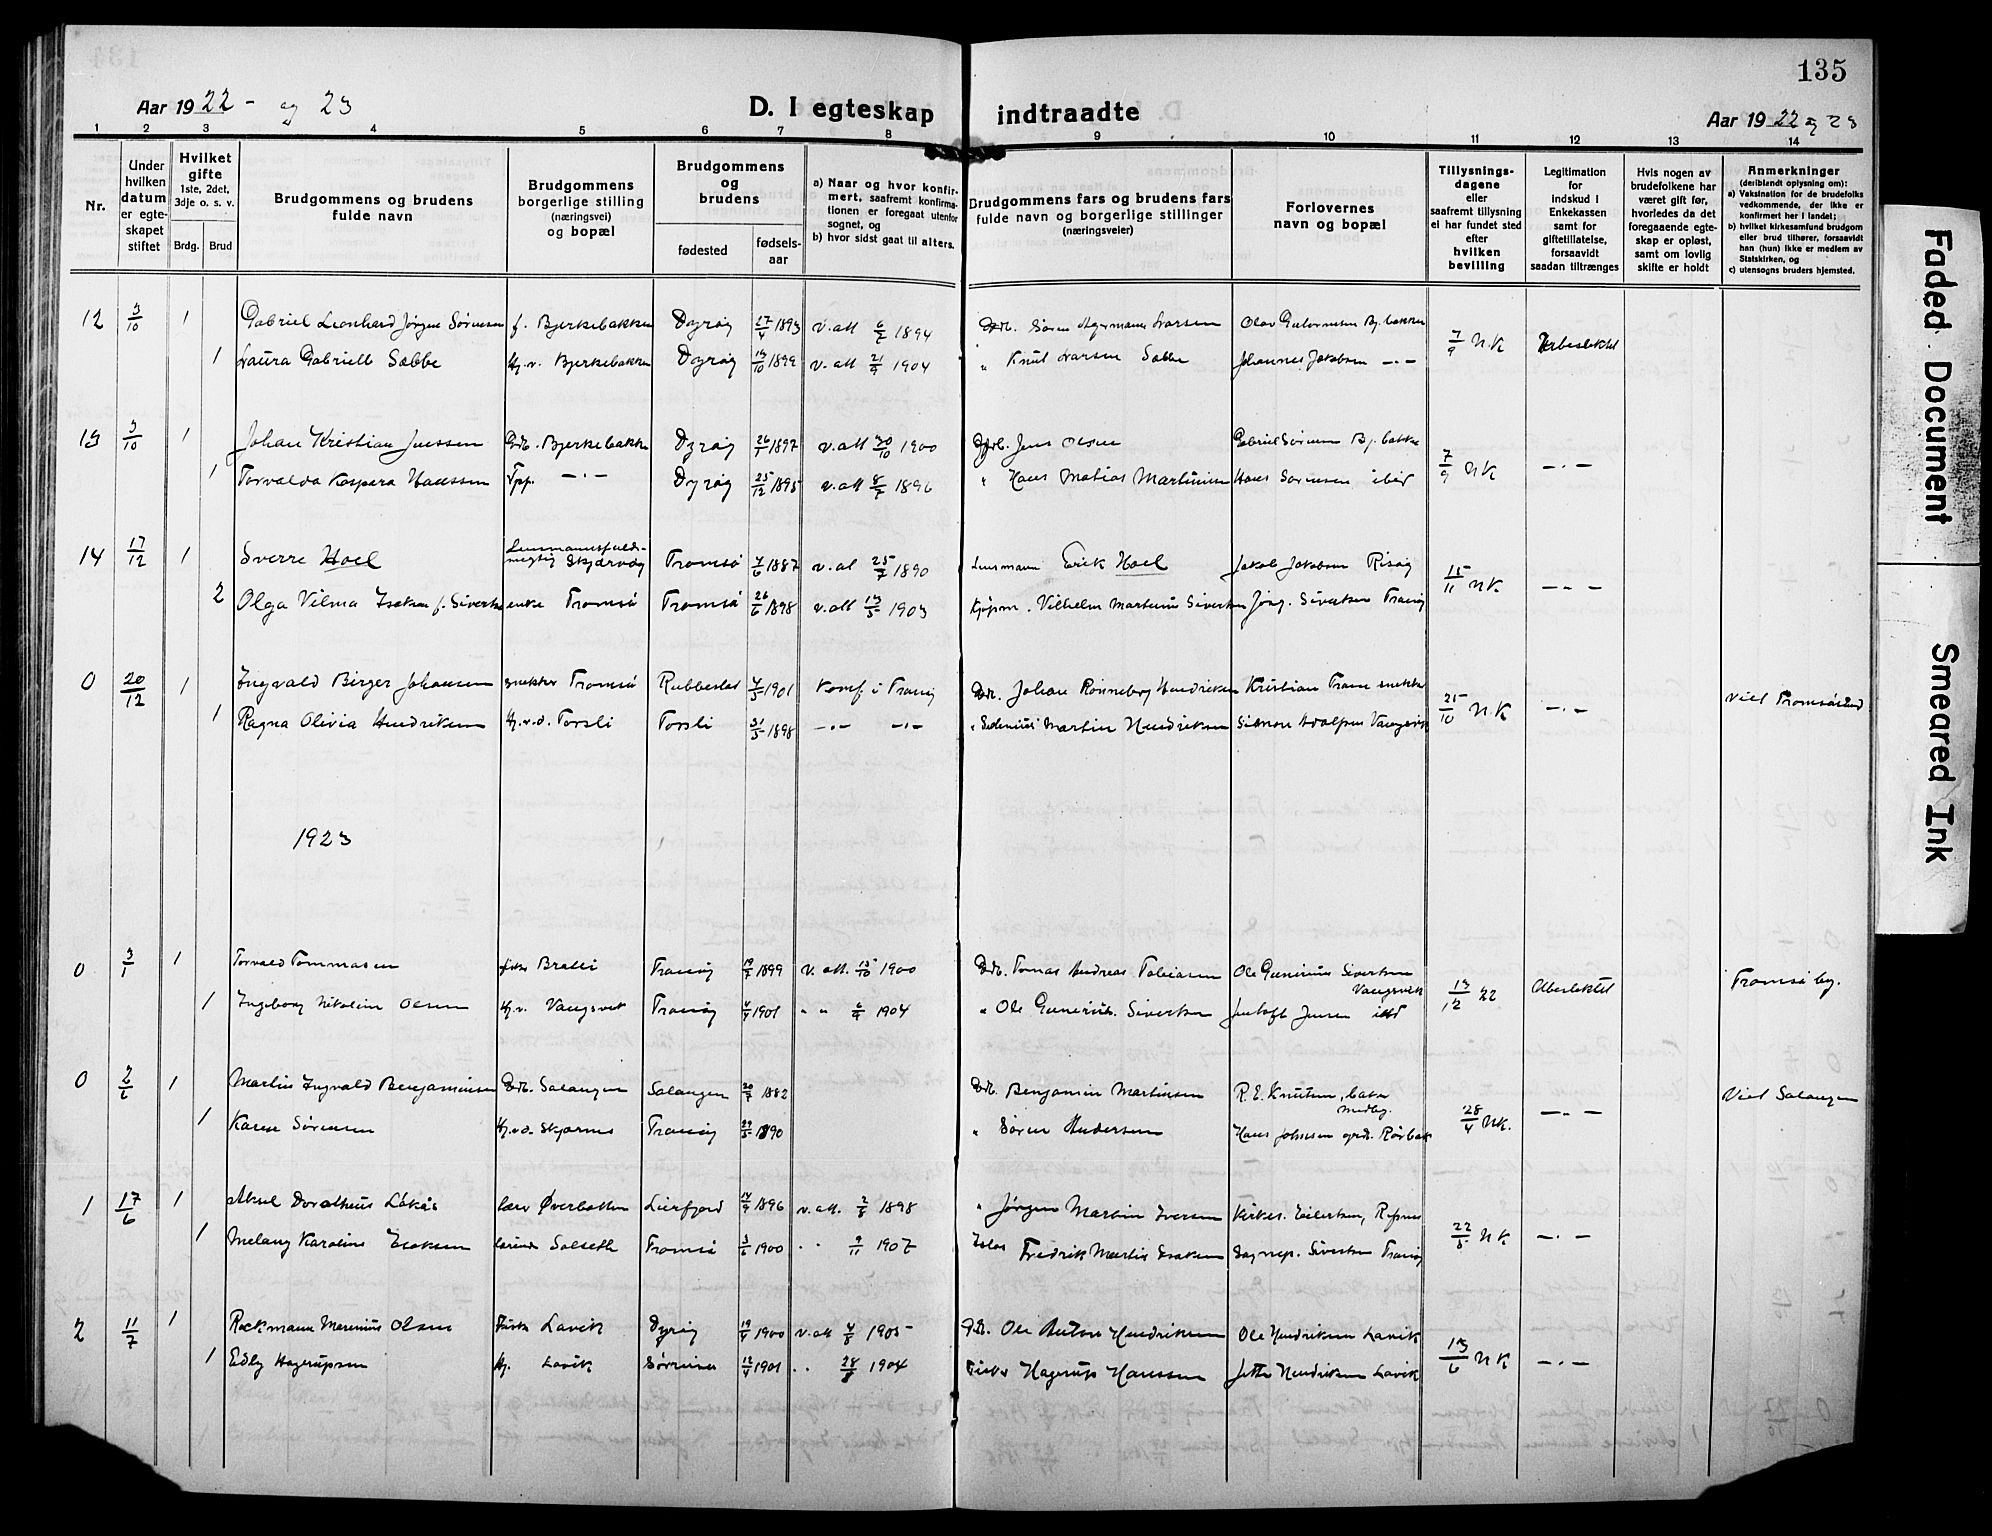 135
Aar 1922 - og 23
D. I egteskap indtraadte
Aar 1922 og 23
1 2 3 4 5 6 7 8 9 10 11 12 13 14
Nr.
Under hvilken datum er egteskapet stiftet
Hvilket gifte 1ste, 2det, 3dje o. s. v.
Brdg. Brud
Brudgommens og brudens fulde navn
Brudgommens borgerlige stilling (næringsvei) og bopæl
Brudgommens og brudens
fødested
fødselsaar
a) Naar og hvor konfirmert, saafremt konfirmationen er foregaat utenfor sognet, og
b) hvor sidst gaat til alters.
Brudgommens fars og brudens fars fulde navn og borgerlige stillinger (næringsveier)
Forlovernes navn og bopæl
Tillysningsdagene eller saafremt tillysning ei har fundet sted efter hvilken bevilling
Legitimation for indskud i Enkekassen samt for giftetillatelse, forsaavidt saadan tiltrænges
Hvis nogen av brudefolkene har været gift før, hvorledes da det foregaaende egteskap er opløst, samt om lovlig skifte er holdt
Anmerkninger (deriblandt oplysning om):
a) Vaksination for de brudefolks vedkommende, der ikke er konfirmert her i landet;
b) hvilket kirkesamfund brudgom eller brud tilhører, forsaavidt han (hun) ikke er medlem av Statskirken, og
c) utensogns bruders hjemsted.
12 3/10 1 Gabriel Leonhard Jørgen Sørensen f. Bjerkebakken Dyrøy 27/4 1893 v. alt 6/7 1894 Søren Larsen 7/9 N.K
1 Laura Gabriell Sæbbe Bjerkebakken Dyrøy 1899 v. alt 21/9 1904 " Knut Larsen Sæbbe Johannes Jakobsen -"-
13 3/10 1 Johan Kristian Jenssen Bjerkebakke Dyrøy 26/1 1897 v. alt 30/10 1900 Jens Olsen Gabriel Sørensen Bj.bakke 7/9 N K -"-
1 Torvalda Kaspara Hanssen -"- Dyrøy 25/12 1895 v. alt 8/7 1896 " Hans Matias Martinusen Hans Sørensen ibid
14 17/12 1 Sverre Hoel Lensmannsfuldmegtig Skjærvøy Tromsø 7/6 1887 v. al 25/7 1890 Lensmann Erik Hoel Jakob Jakobsen Risøy 15/11 N K -"-
2 Olga Vilma Isaksen f. Sivertsen enke Tromsø Tromsø 26/6 1898 v. alt 13/5 1903 Kjøpm. Vilhelm Martinus Sivertsen Sivertsen Tranøy
0 20/12 1 Ingvald Birger Johansen snekker Tromsø Rubbestad 4/5 1901 konf. i Tranøy Johan Rønneberg Hendriksen Kristian Trane snekker 25/10 N.K -"- Viet Tromsøsund
1 Ragna Olivia Hendriksen Torsli Torsli 31/5 1898 -"- -"- " Martin Hendriksen Simon Adolfsen Vangsvik
1923
0 3/1 1 Torvald Tommasen Bratli Tranøy 19/7 1899 v. alt. 15/10 1900 Tomas Andreas Tobiasen Ole Gunerius Sivertsen Vangsvik 13/12 22 Ubeslektet Tromsø by.
1 Ingeborg Nikoline Olsen Vangsvik Tranøy 4/4 1901 " " 6/9 1904 " Ole Gunerius Sivertsen Jensen ibid
0 2/6 1 Martin Ingvald Benjaminsen Salangen Salangen 20/7 1882 Benjamin Martinsen R. E. Knutsen, 28/4 NK. -"- Viet Salangen
1 Karen Sørensen Tranøy 29/5 1890 " Søren Andersen Hans Johnsen
1 17/6 1 Aksel Dorotheus Løkås Øverbotten Lierfjord 14/9 1896 v. alt. 2/8 1898 " Jørgen Martin Iversen Kirkes. Eilertsen, 22/5 N K -"-
1 Melany Karoline Isaksen Solseth Tromsø 3/6 1900 " " 9/11 1907 Fredrik Martin Isaksen Sivertsen Tranøy
2 11/7 1 Rockmann Marenius Olsen Lavik Dyrøy 19/4 1900 v. alt 4/8 1905 Ole Anton Hendriksen Ole Hendriksen Lavik 13/6 N K -"-
1 Edly Hagerupsen Lavik Sørreisa 12/4 1901 " " 28/8 1904 Hagerup Hanssen Hendriksen Lavik
Faded Document
Smeared Ink